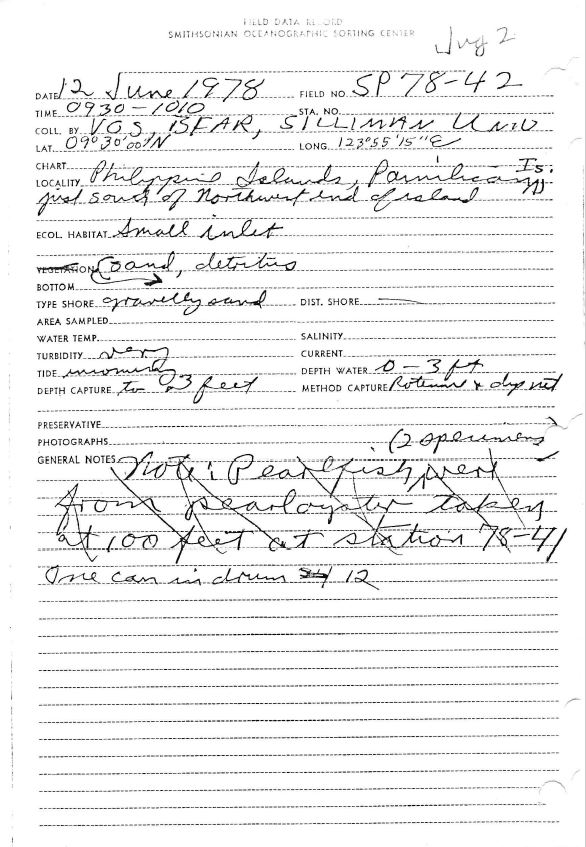 FIELD DATA RECORD
SMITHSONIAN OCEANOGRAPHIC SORTING CENTER
Jug 2
DATE 12 June 1978 FIELD NO. SP 78-42
TIME 0930-1010 STA. NO.
COLL. BY VGS, ISFAR, SILLIMAN Univ
LAT. 09°30'00"N LONG. 123°55'15"E
CHART
LOCALITY Philippine Islands, Pamilacan Is.
just south of Northwest end of island
ECOL. HABITAT Small inlet
VEGETATION sand, detritus
BOTTOM
TYPE SHORE gravelly sand DIST. SHORE
AREA SAMPLED
WATER TEMP. SALINITY
TURBIDITY very CURRENT
TIDE incoming DEPTH WATER 0-3 ft
DEPTH CAPTURE to 3 feet METHOD CAPTURE Rotenone & dip net
PRESERVATIVE
PHOTOGRAPHS (2 specimens)
GENERAL NOTES Note: Pearlfish were
from pearloyster taken
at 100 feet at station 78-41
One can in drum 12